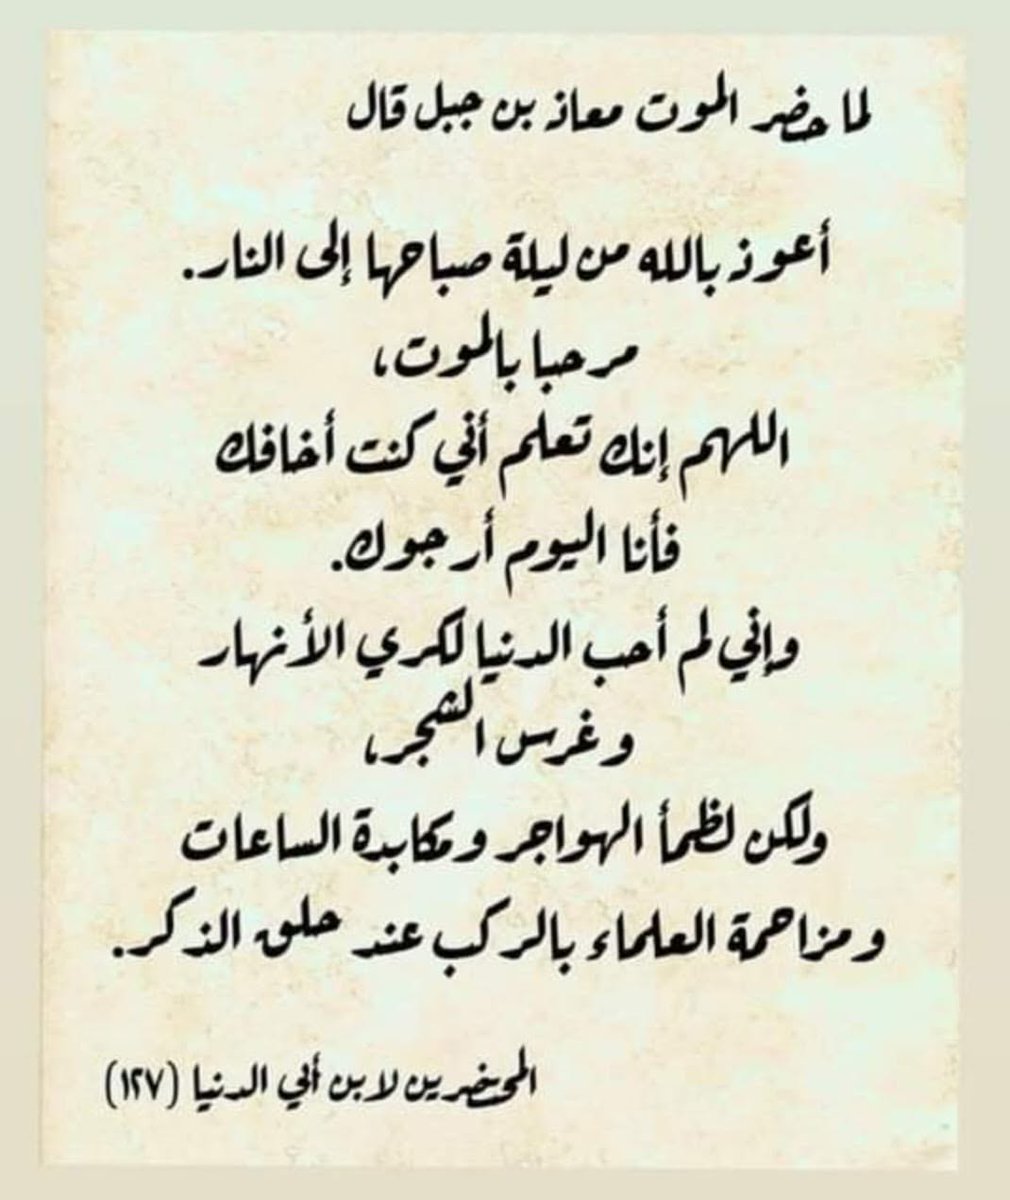 لما حضر الموت معاذ بن جبل قال
أعوذ بالله من ليلة صباحها إلى النار.
مرحبا بالموت،
اللهم إنك تعلم أني كنت أخافك
فأنا اليوم أرجوك.
وإني لم أحب الدنيا لكري الأنهار
وغرس الشجر،
ولكن لظمأ الهواجر ومكابدة الساعات
ومزاحمة العلماء بالركب عند حلق الذكر.
المحتضرين لابن أبي الدنيا (١٢٧)